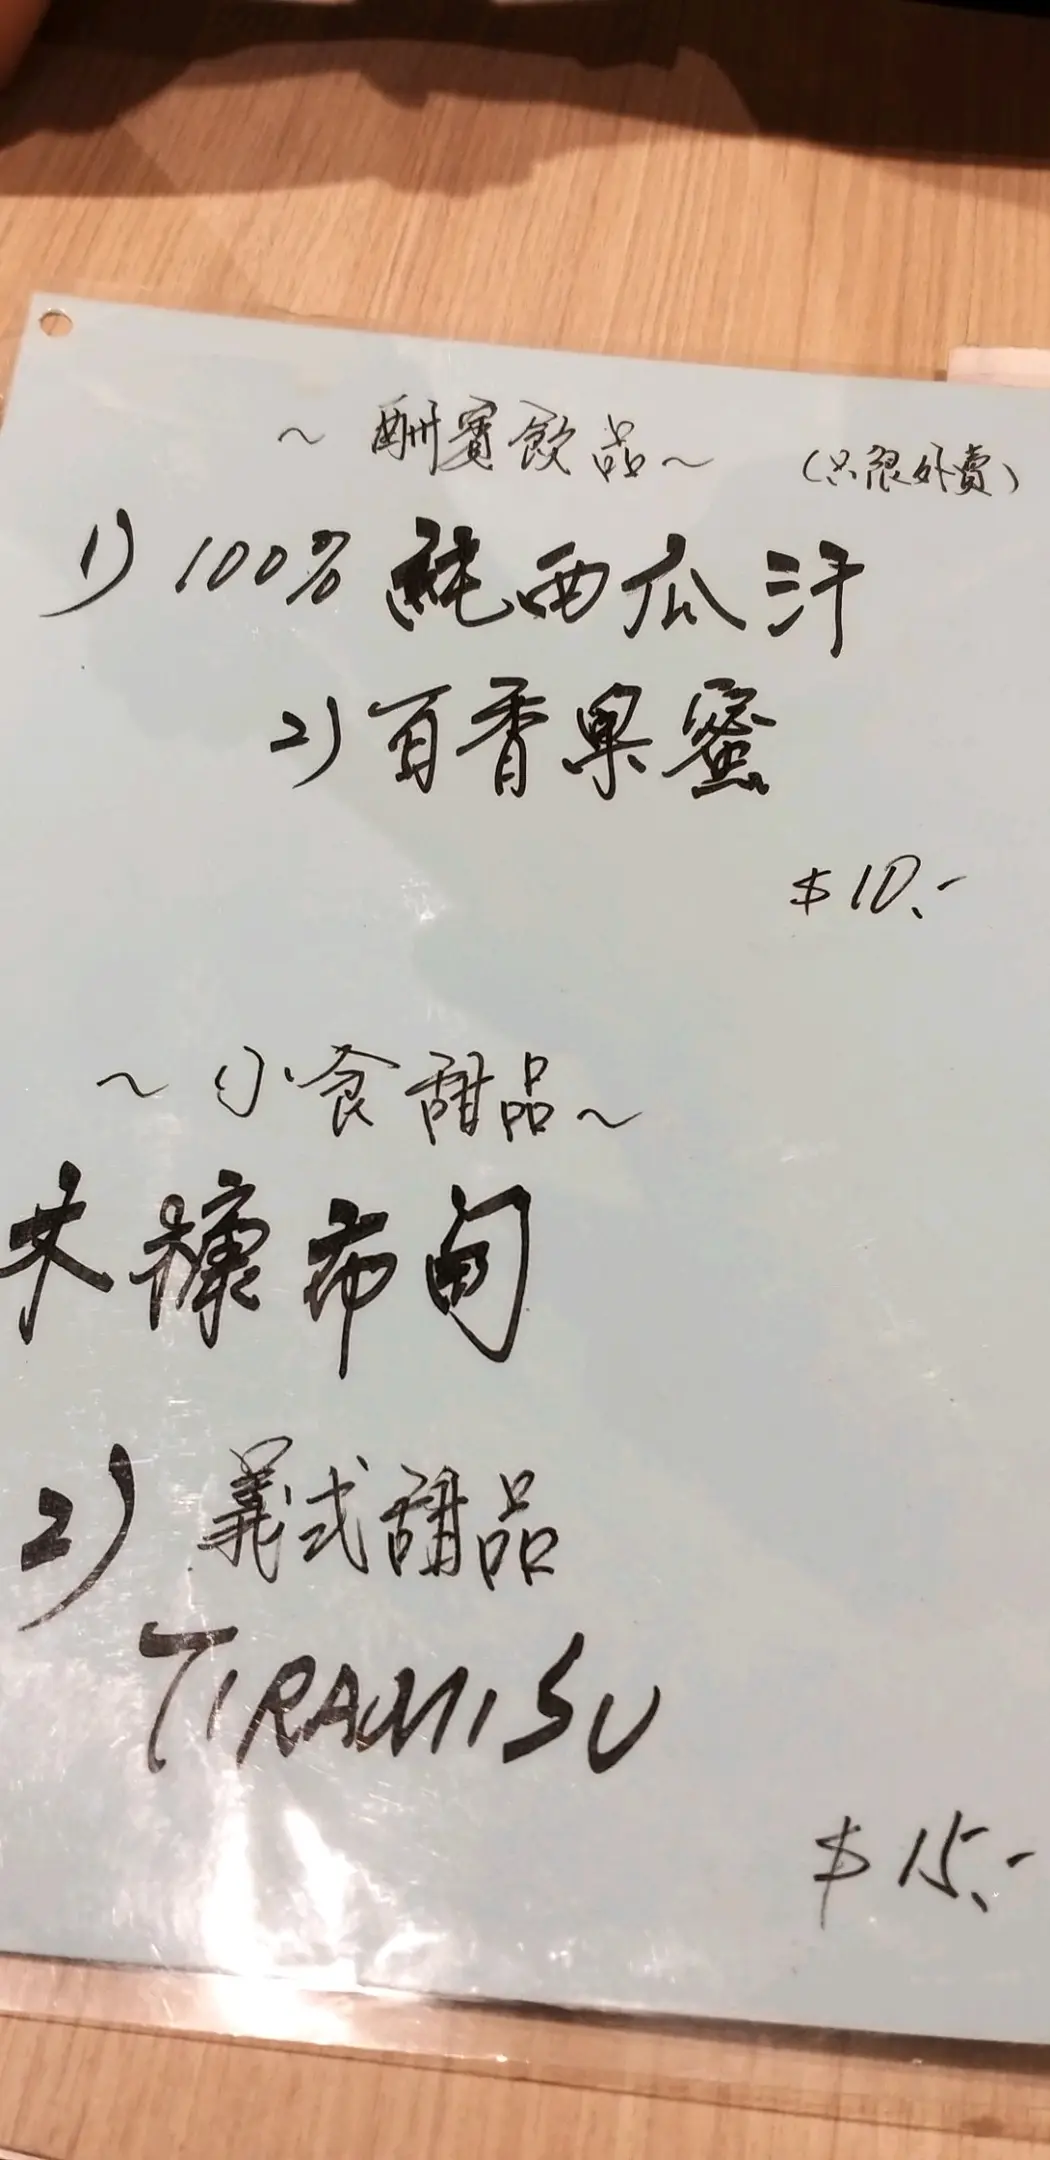 ~ 酬賓飲品 ~ (只限外賣)
1) 100% 純西瓜汁
2) 百香果蜜
$10.-
~ 小食甜品 ~
木糠布甸
2) 義式甜品
TIRAMISU
$15.-